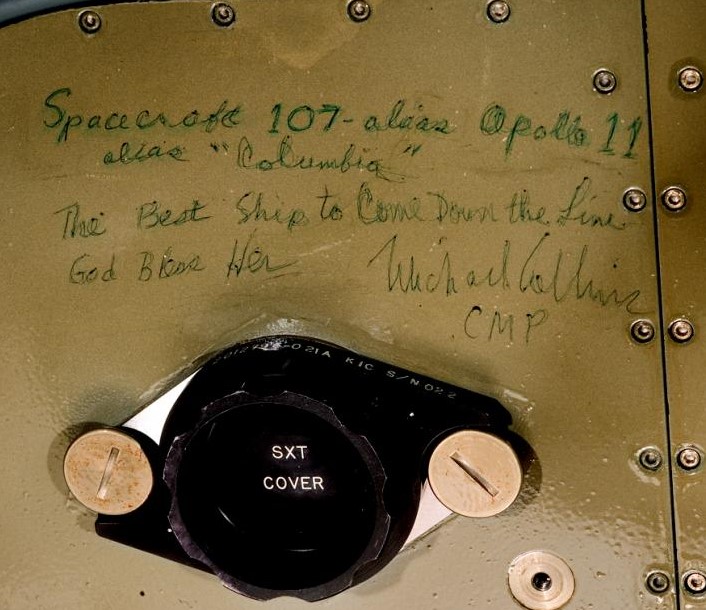 Spacecraft 107- alias Apollo 11
alias "Columbia"
The Best Ship to Come Down the Line
God Bless Her
Michael Collins
CMP
021A KIC S/N 022
SXT
COVER